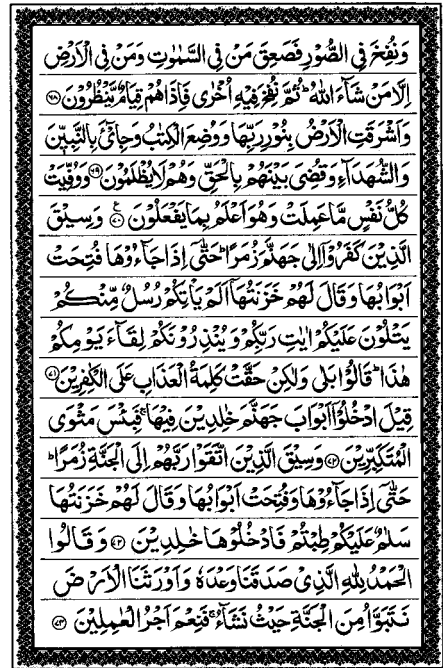 وَنُفِخَ فِي الصُّوْرِ فَصَعِقَ مَنْ فِي السَّمٰوٰتِ وَمَنْ فِي الْاَرْضِ
اِلَّا مَنْ شَآءَ اللّٰهُ ؕ ثُمَّ نُفِخَ فِيْهِ اُخْرٰى فَاِذَا هُمْ قِيَامٌ يَّنْظُرُوْنَ ﴿۶۸﴾
وَاَشْرَقَتِ الْاَرْضُ بِنُوْرِ رَبِّهَا وَوُضِعَ الْكِتٰبُ وَجِايْٓءَ بِالنَّبِيّٖنَ
وَالشُّهَدَآءِ وَقُضِيَ بَيْنَهُمْ بِالْحَقِّ وَهُمْ لَا يُظْلَمُوْنَ ﴿۶۹﴾ وَوُفِّيَتْ
كُلُّ نَفْسٍ مَّا عَمِلَتْ وَهُوَ اَعْلَمُ بِمَا يَفْعَلُوْنَ ﴿۷۰﴾ وَسِيْقَ
الَّذِيْنَ كَفَرُوْٓا اِلٰى جَهَنَّمَ زُمَرًا ؕ حَتّٰٓى اِذَا جَآءُوْهَا فُتِحَتْ
اَبْوَابُهَا وَقَالَ لَهُمْ خَزَنَتُهَآ اَلَمْ يَاْتِكُمْ رُسُلٌ مِّنْكُمْ
يَتْلُوْنَ عَلَيْكُمْ اٰيٰتِ رَبِّكُمْ وَيُنْذِرُوْنَكُمْ لِقَآءَ يَوْمِكُمْ
هٰذَا ؕ قَالُوْا بَلٰى وَلٰكِنْ حَقَّتْ كَلِمَةُ الْعَذَابِ عَلَى الْكٰفِرِيْنَ ﴿۷۱﴾
قِيْلَ ادْخُلُوْٓا اَبْوَابَ جَهَنَّمَ خٰلِدِيْنَ فِيْهَا ۚ فَبِئْسَ مَثْوَى
الْمُتَكَبِّرِيْنَ ﴿۷۲﴾ وَسِيْقَ الَّذِيْنَ اتَّقَوْا رَبَّهُمْ اِلَى الْجَنَّةِ زُمَرًا ؕ
حَتّٰٓى اِذَا جَآءُوْهَا وَفُتِحَتْ اَبْوَابُهَا وَقَالَ لَهُمْ خَزَنَتُهَا
سَلٰمٌ عَلَيْكُمْ طِبْتُمْ فَادْخُلُوْهَا خٰلِدِيْنَ ﴿۷۳﴾ وَقَالُوا
الْحَمْدُ لِلّٰهِ الَّذِيْ صَدَقَنَا وَعْدَهٗ وَاَوْرَثَنَا الْاَرْضَ
نَتَبَوَّاُ مِنَ الْجَنَّةِ حَيْثُ نَشَآءُ ۚ فَنِعْمَ اَجْرُ الْعٰمِلِيْنَ ﴿۷۴﴾